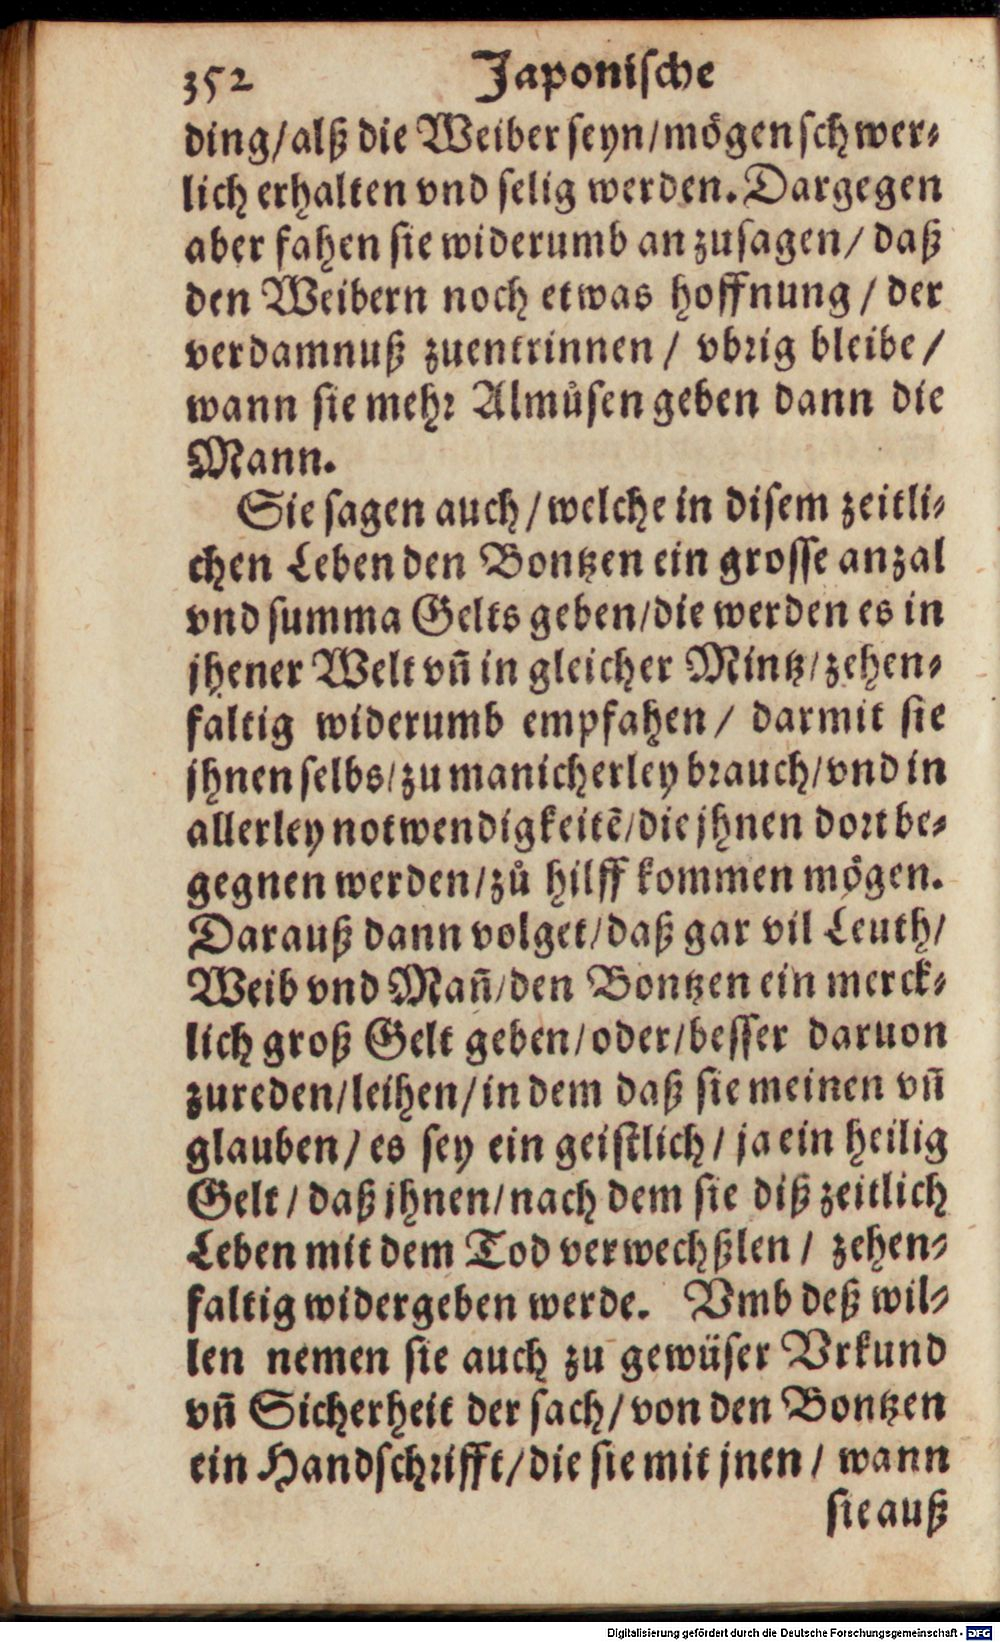 352 Japonische
ding/alß die Weiber seyn/mögen schwer-
lich erhalten vnd selig werden. Dargegen
aber fahen sie widerumb an zusagen/ daß
den Weibern noch etwas hoffnung / der
verdamnuß zuentrinnen / vbrig bleibe /
wann sie mehr Almůsen geben dann die
Mann.
Sie sagen auch / welche in disem zeitli-
chen Leben den Bontzen ein grosse anzal
vnd summa Gelts geben/die werden es in
jhener Welt vñ in gleicher Mintz/zehen-
faltig widerumb empfahen / darmit sie
jhnen selbs/zu manicherley brauch/vnd in
allerley notwendigkeitẽ/die jhnen dort be-
gegnen werden/zů hilff kommen mögen.
Darauß dann volget/daß gar vil Leuth/
Weib vnd Mañ/den Bontzen ein merck-
lich groß Gelt geben/oder/besser daruon
zureden/leihen/in dem daß sie meinen vñ
glauben / es sey ein geistlich / ja ein heilig
Gelt / daß jhnen/nach dem sie diß zeitlich
Leben mit dem Tod verwechßlen / zehen-
faltig widergeben werde. Vmb deß wil-
len nemen sie auch zu gewüser Vrkund
vñ Sicherheit der sach/von den Bontzen
ein Handschrifft/die sie mit jnen / wann
sie auß
Digitalisierung gefördert durch die Deutsche Forschungsgemeinschaft - DFG